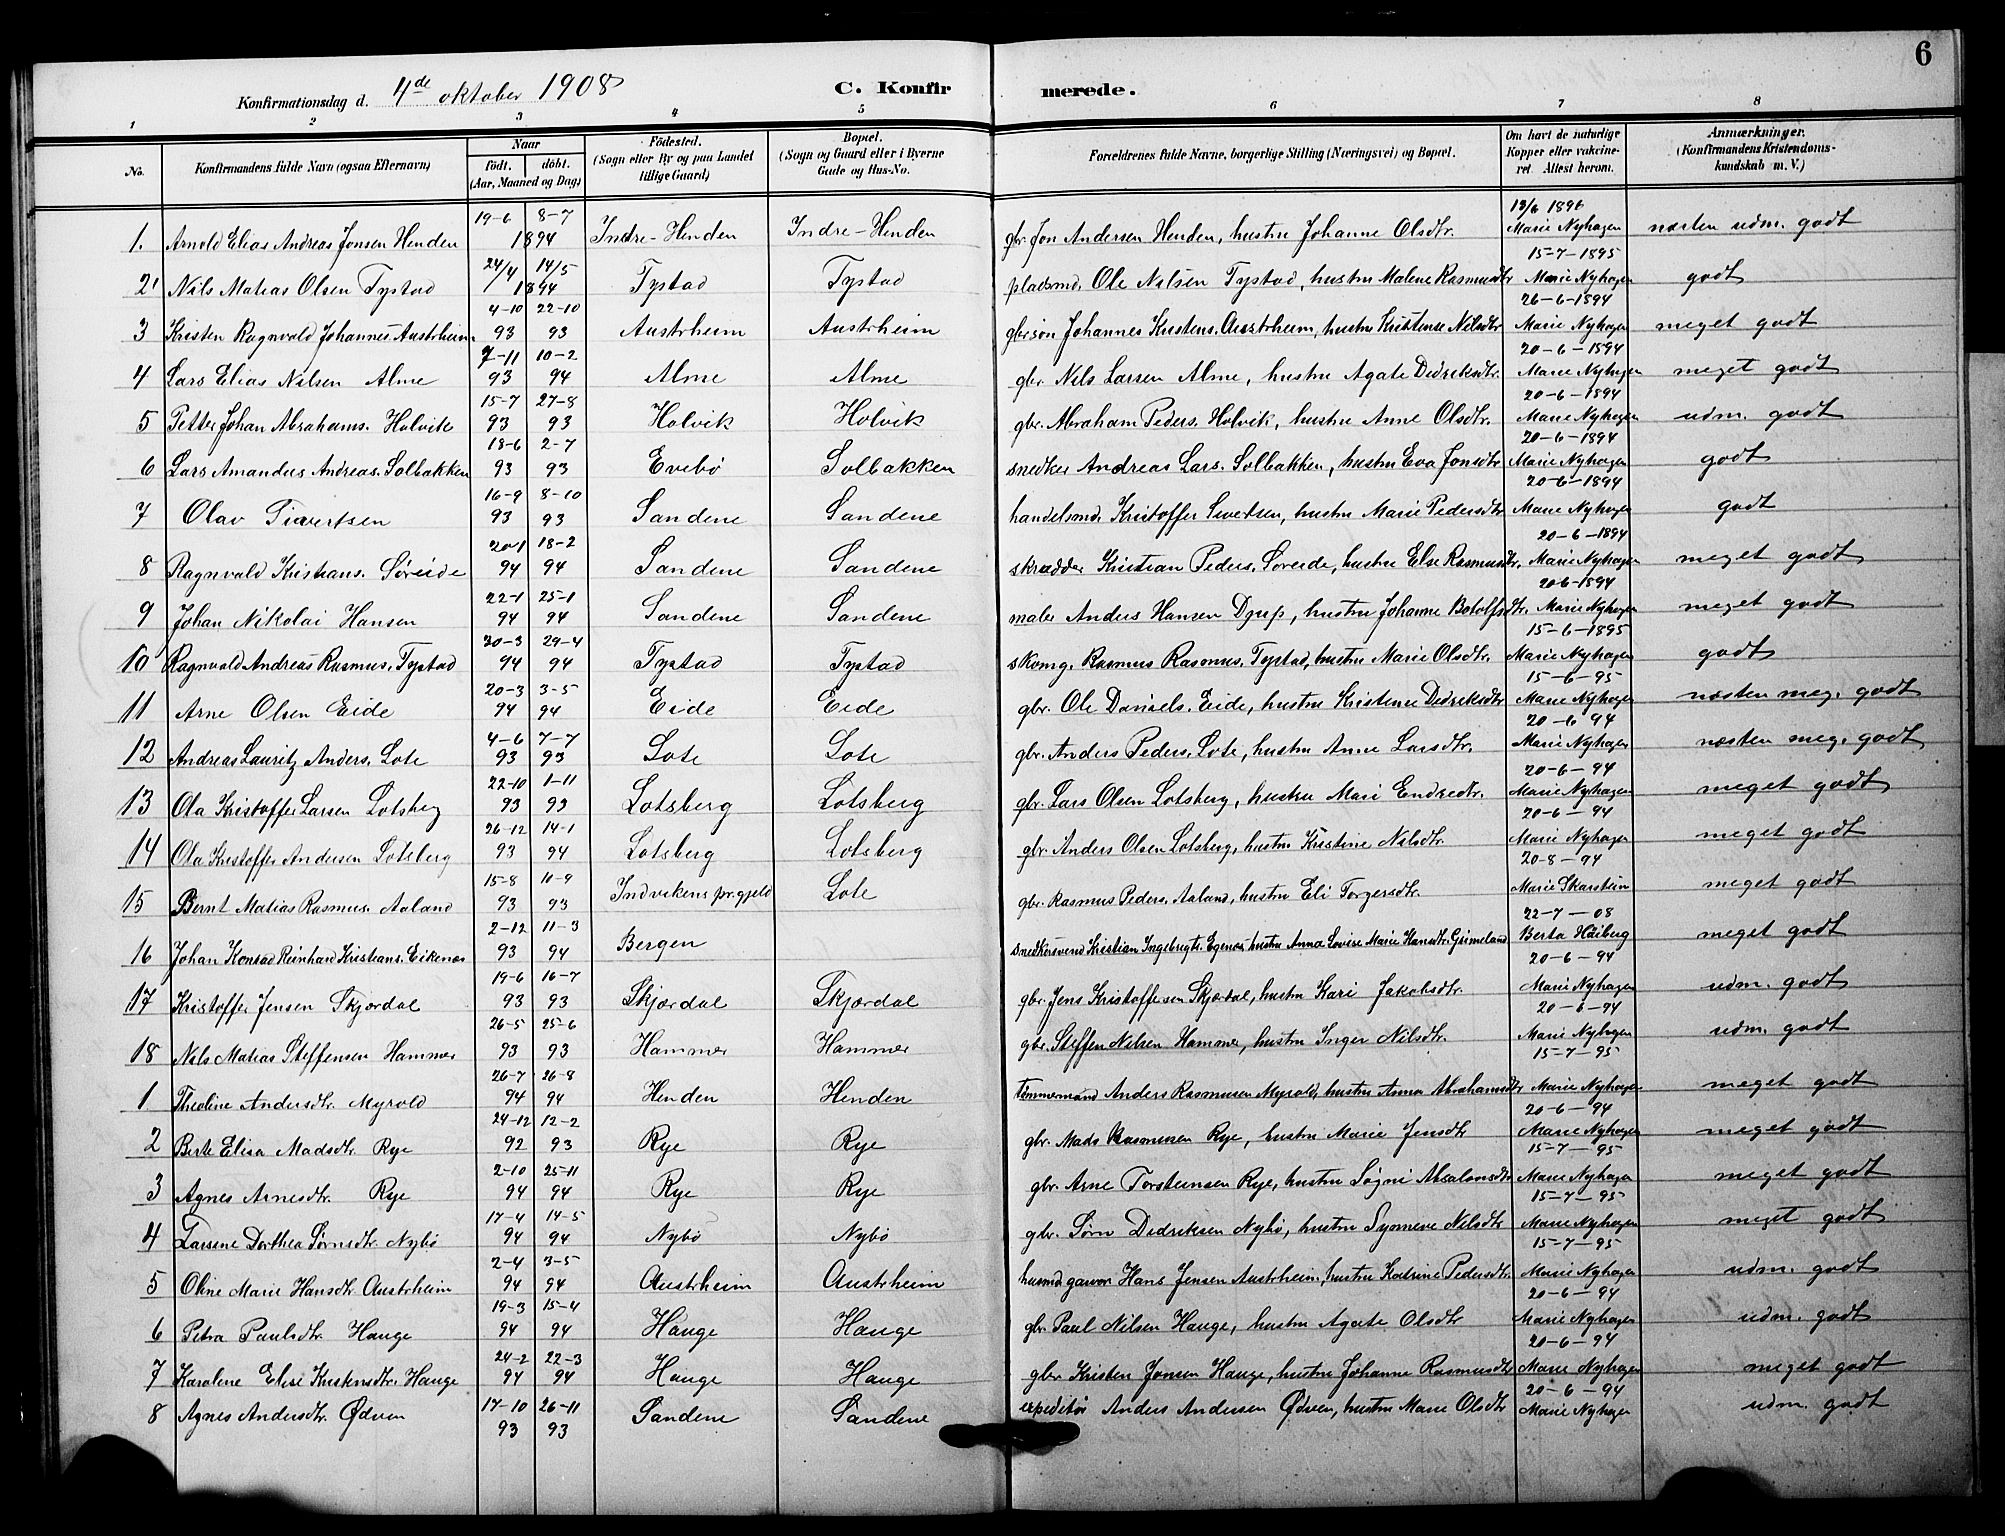 6
Konfirmationsdag d. 4de oktober 1908 C. Konfirmerede.
1 2 3 4 5 6 7 8
No. Konfirmandens fulde Navn (ogsaa Efternavn) Naar født. døbt. (Aar, Maaned og Dag) Fødested. (Sogn eller By og paa Landet tillige Gaard) Bopæl. (Sogn og Gaard eller i Byerne Gade og Hus-No. Forældrenes fulde Navne, borgerlige Stilling (Næringsvei) og Bopæl. Om havt de naturlige Kopper eller vakcineret Attest herom. Anmærkninger. (Konfirmandens Kristendomskundskab m. V.)
1. Arnold Elias Andreas Jonsen Henden 19-6 8-7 1894 Indre-Henden Indre-Henden gbr. Jon Andersen Henden, hustru Johanne Olsdtr. 13/6 1896 Marie Nyhagen næsten udm. godt
2 Nils Matias Olsen Tystad 24/4 14/5 1894 Tystad Tystad pladsmd. Ole Nilsen Tystad, hustru Malene Rasmusdtr 15-7-1895 Marie Nyhagen godt
3 Kristen Ragnvald Johannes. Austrheim 4-10 93 22-10 93 Austrheim Austrheim gbr.søn Johannes Kristens. Austrheim, hustru Kristense Nilsdtr 26-6-1894 Marie Nyhagen meget godt
4 Lars Elias Nilsen Alme 7-11 93 10-2 94 Alme Alme gbr. Nils Larsen Alme, hustru Agate Didriksdtr. 20-6-1894 Marie Nyhagen meget godt
5 Petter Johan Abrahams. Holvik 15-7 93 27-8 93 Holvik Holvik gbr. Abraham Peders. Holvik, hustru Anne Olsdtr. 20-6-1894 Marie Nyhagen udm. godt
6 Lars Amandus Andreas. Solbakken 18-6 93 2-7 93 Evebø Solbakken snedker Andreas Lars. Solbakken, hustru Eva Jonsdtr 20-6-1894 Marie Nyhagen godt
7 Olav Sivertsen 16-9 93 8-10 93 Sandene Sandene handelsmd. Kristoffer Sivertsen, hustru Marie Pedersdtr 20-6-1894 Marie Nyhagen godt
8 Ragnvald Kristians. Søreide 20-1 94 18-2 94 Sandene Sandene skrædder Kristian Peders. Søreide, hustru Else Rasmusdtr. 20-6-1894 Marie Nyhagen meget godt
9 Johan Nikolai Hansen 22-1 94 25-1 94 Sandene Sandene maler Anders Hansen Djup, hustru Johanne Botolfsdtr. 20-6-1894 Marie Nyhagen meget godt
10 Ragnvald Andreas Rasmus. Tystad 30-3 94 29-4 94 Tystad Tystad skomg. Rasmus Rasmus. Tystad, hustru Marie Olsdtr. 15-6-1895 Marie Nyhagen godt
11 Arne Olsen Eide 20-3 94 3-5 94 Eide Eide gbr. Ole Daniels. Eide, hustru Kristense Didriksdtr 15-6-95 Marie Nyhagen næsten meg. godt
12 Andreas Lauritz Anders. Lote 4-6 93 7-7 93 Lote Lote gbr. Anders Peders. Lote, hustru Anne Larsdtr. 20-6 94 Marie Nyhagen næsten meg. godt
13 Ola Kristoffer Larsen Lotsberg 22-10 93 1-11 93 Lotsberg Lotsberg gbr. Lars Olsen Lotsberg, hustru Mari Endredtr. 20-6-94 Marie Nyhagen meget godt
14 Ola Kristoffer Andersen Lotsberg 26-12 93 14-1 94 Lotsberg Lotsberg gbr. Anders Olsen Lotsberg, hustru Kristine Nilsdtr. 20-6-94 Marie Nyhagen meget godt
15 Bernt Matias Rasmus. Aaland 15-8 93 10-9 93 Indvikens pr.gjeld Lote gbr. Rasmus Peders. Aaland, hustru Eli Torgersdtr. 20-8-94 Marie Skarstein meget godt
16 Johan Konrad Reinhard Kristians. Eikenæs 2-12 93 11-3 94 Bergen snedkersvend Kristian Ingebrigts. Egenæs hustru Anna Lovise Marie Hansdtr. Grimeland 22-7-08 Berta Håiberg meget godt
17 Kristoffer Jensen Skjørdal 19-6 93 16-7 93 Skjørdal Skjørdal gbr. Jens Kristoffersen Skjørdal, hustru Kari Jakobsdtr. 20-6-94 Marie Nyhagen udm. godt
18 Nils Matias Steffensen Hammer 26-5 93 25-6 93 Hammer Hammer gbr. Steffen Nilsen Hammer, hustru Inger Nilsdtr. 20-6-94 Marie Nyhagen udm. godt
1 Theoline Andersdtr. Myrold 26-7 94 26-8 94 Henden Henden tømmermand Anders Rasmusen Myrold, hustru Anna Abrahamsdtr 15-7-95 Marie Nyhagen meget godt
2 Berte Elisa Madsdtr. Rye 24-12 92 12-2 93 Rye Rye gbr. Mads Rasmusen Rye, hustru Marie Jensdtr 20-6-94 Marie Nyhagen meget godt
3 Agnes Arnesdtr. Rye 2-10 94 25-11 94 Rye Rye gbr. Arne Torsteinsen Rye, hustru Søgni Absalonsdtr 15-7-95 Marie Nyhagen meget godt
4 Larsine Dorthea Sørnsdtr. Nybø 17-4 94 14-5 94 Nybø Nybø gbr. Sørn Didriksen Nybø, hustru Synneve Nilsdtr 15-7-95 Marie Nyhagen meget godt
5 Oline Marie Hansdtr Austrheim 2-4 94 3-5 94 Austrheim Austrheim husmd. garver Hans Jensen Austrheim, hustru Katrine Pedersdtr 15-7-95 Marie Nyhagen udm. godt
6 Petra Paulsdtr. Hauge 19-3 94 15-4 94 Hauge Hauge gbr. Paul Nilsen Hauge, hustru Agate Olsdtr 20-6-94 Marie Nyhagen udm. godt
7 Karoline Elise Kristensdtr. Hauge 24-2 94 22-3 94 Hauge Hauge gbr. Kristen Jonsen Hauge, hustru Johanne Rasmusdtr 20-6-94 Marie Nyhagen meget godt
8 Agnes Andersdtr. Ødven 17-10 93 26-11 93 Sandene Sandene expeditør Anders Andersen Ødven, hustru Marie Olsdtr 20-6-94 Marie Nyhagen udm. godt